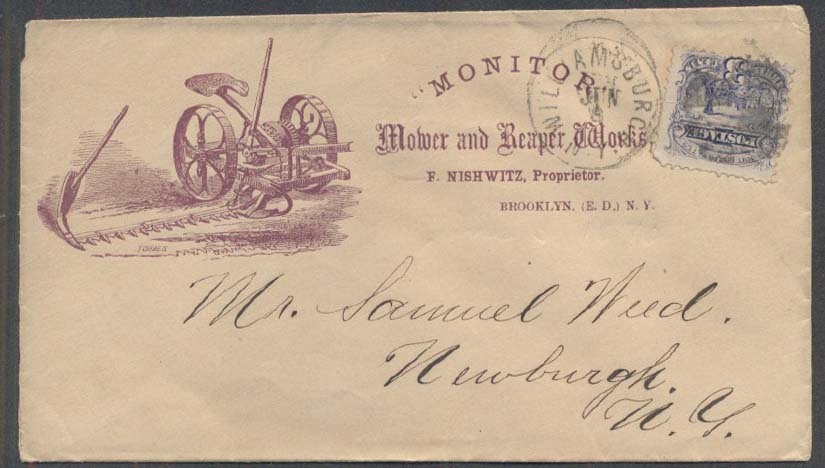 "MONITOR"
Mower and Reaper Works
F. NISHWITZ, Proprietor.
BROOKLYN, (E. D.) N. Y.
WILLIAMSBURG
JUN
POSTAGE
FORBES
Mr. Samuel Wied.
Newburgh.
N. Y.